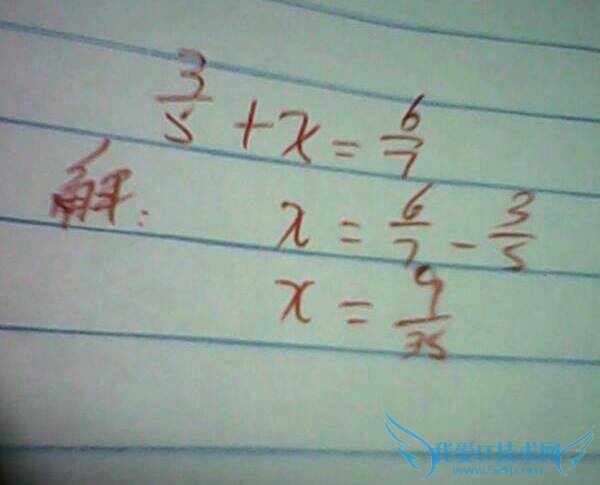 3/5 + x = 6/7
解: x = 6/7 - 3/5
x = 9/35
我爱IT技术网
www.52ij.com